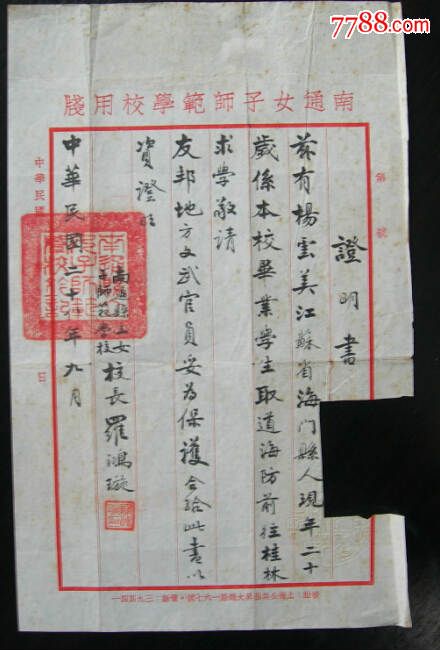 7788.com
南通女子師範學校用牋
第 號
證明書
茲有楊雲美江蘇省海门縣人現年二十
歲係本校畢業學生取道海防前往桂林
求学敬請
友邦地方文武官員妥为保護合給此書以
資證明
校長羅鴻璇
中華民國二十年九月
中華民國
日